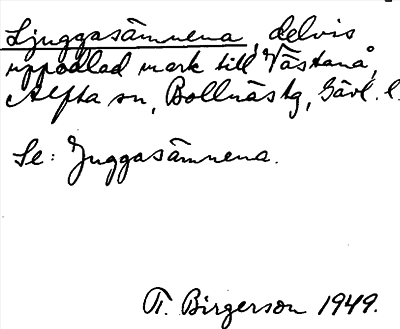 Ljuggasämnena, delvis
uppodlad mark till Västanå,
Alfta sn, Bollnäs tg, Gävl. l.
Se: Juggasämnena.
T. Birgerson 1949.